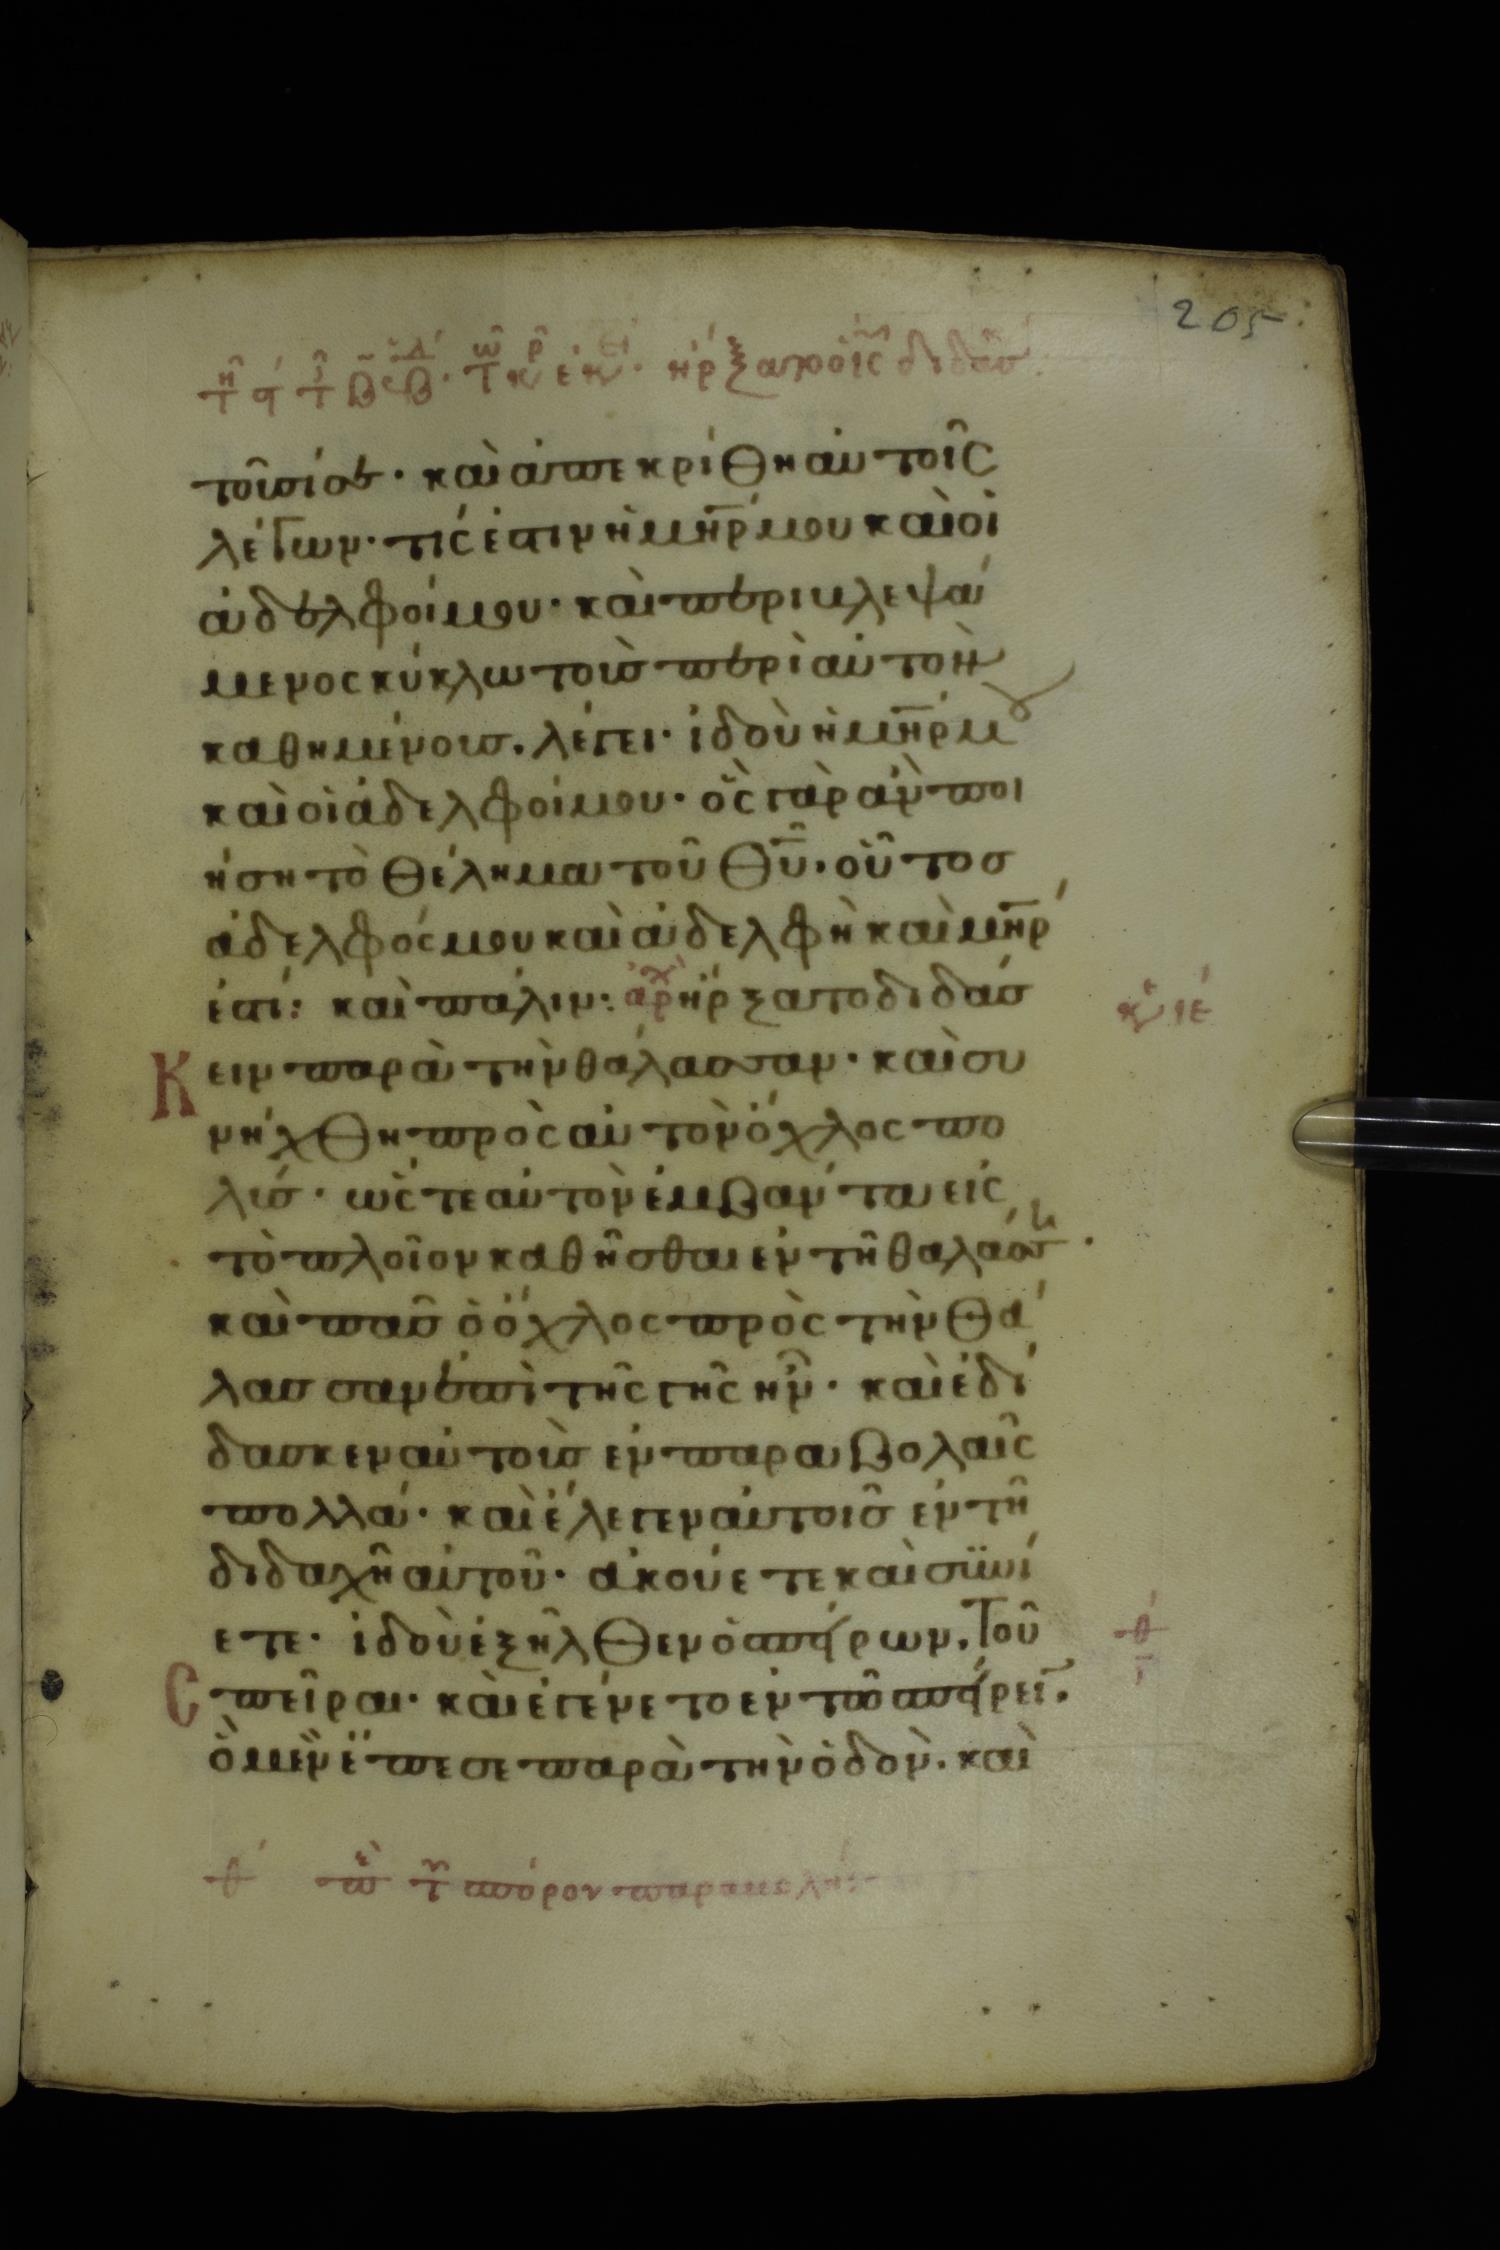 205
ἤρξατο ὁ ἰς διδάσ
τοῦσί σε· καὶ ἀπεκρίθη αὐτοῖς
λέγων· τίς ἐστιν ἡ μηρ μου καὶ οἱ
ἀδελφοί μου· καὶ περιβλεψά
μενος κύκλω τοὺσ περὶ αὐτὸν
καθημένουσ. λέγει· ἰδοὺ ἡ μηρ μου
καὶ οἱ ἀδελφοί μου· ὃς γὰρ ἂν ποι
ήση τὸ θέλημα τοῦ θυ. οὗτοσ
ἀδελφός μου καὶ ἀδελφὴ καὶ μηρ
ἐστί: καὶ πάλιν: ἀρχ ἤρξατο διδάσ
κειν παρὰ τὴν θάλασσαν· καὶ συ
νήχθη πρὸς αὐτὸν ὄχλος πο
λύσ· ὥς τε αὐτὸν ἐμβάντα εἰς
τὸ πλοῖον καθῆσθαι ἐν τῆ θαλάσση·
καὶ πᾶσ ὁ ὄχλος πρὸς τὴν θά
λασσαν ἐπὶ τῆς γῆς ἦν· καὶ ἐδί
δασκεν αὐτοὺσ ἐν παραβολαῖς
πολλά· καὶ ἔλεγεν αὐτοῖσ ἐν τῆ
διδαχῆ αὐτοῦ· ἀκούετε καὶ συνί
ετε· ἰδοὺ ἐξῆλθεν ὁ σπείρων. τοῦ
σπεῖραι· καὶ ἐγένετο ἐν τῶ σπείρειν.
ὃ μὲν ἔπεσε παρὰ τὴν ὁδόν. καὶ
θ σπόρον